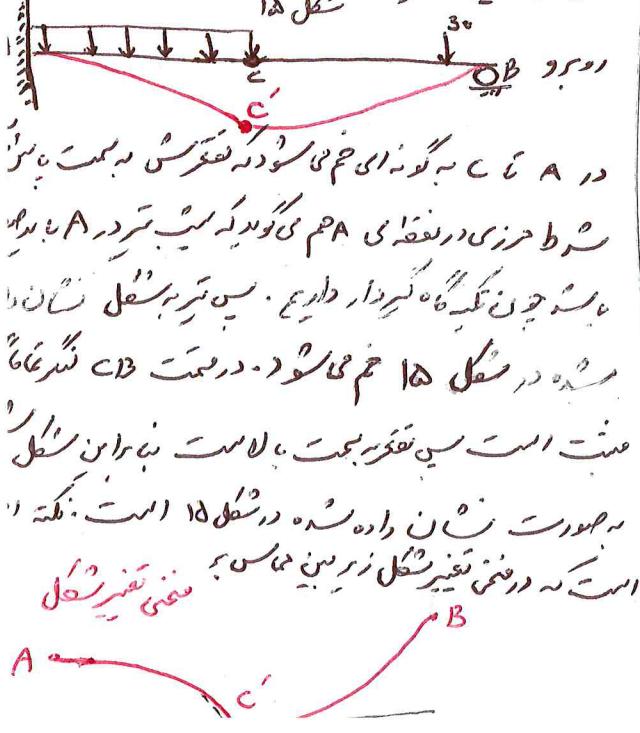 شکل ۱۵
30
روبرو
B
C
C′
در A تا C به گونه ای خم می شود که تقعرش به سمت پایین
شرط مرزی در نقطه ی A هم می گوید که شیب تیر در A باید
باشد چون تکیه گاه گیردار داریم. پس تیر به شکل نشان
شده در شکل ۱۵ خم می شود. در قسمت CB لنگر تماماً
مثبت است پس تقعر به سمت بالاست بنابراین شکل
به صورت نشان داده شده در شکل ۱۵ است. نکته
است که در منحنی تغییر شکل زیر بین مماس بر
منحنی تغییر شکل
B
A
C′